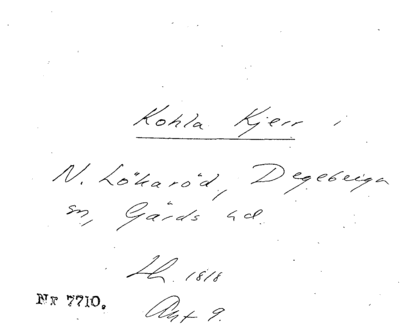 Kohla Kjerr i
N. Lökaröd, Degeberga
sn, Gärds hd.
Lh. 1818
Nr 7710.
Akt 9.